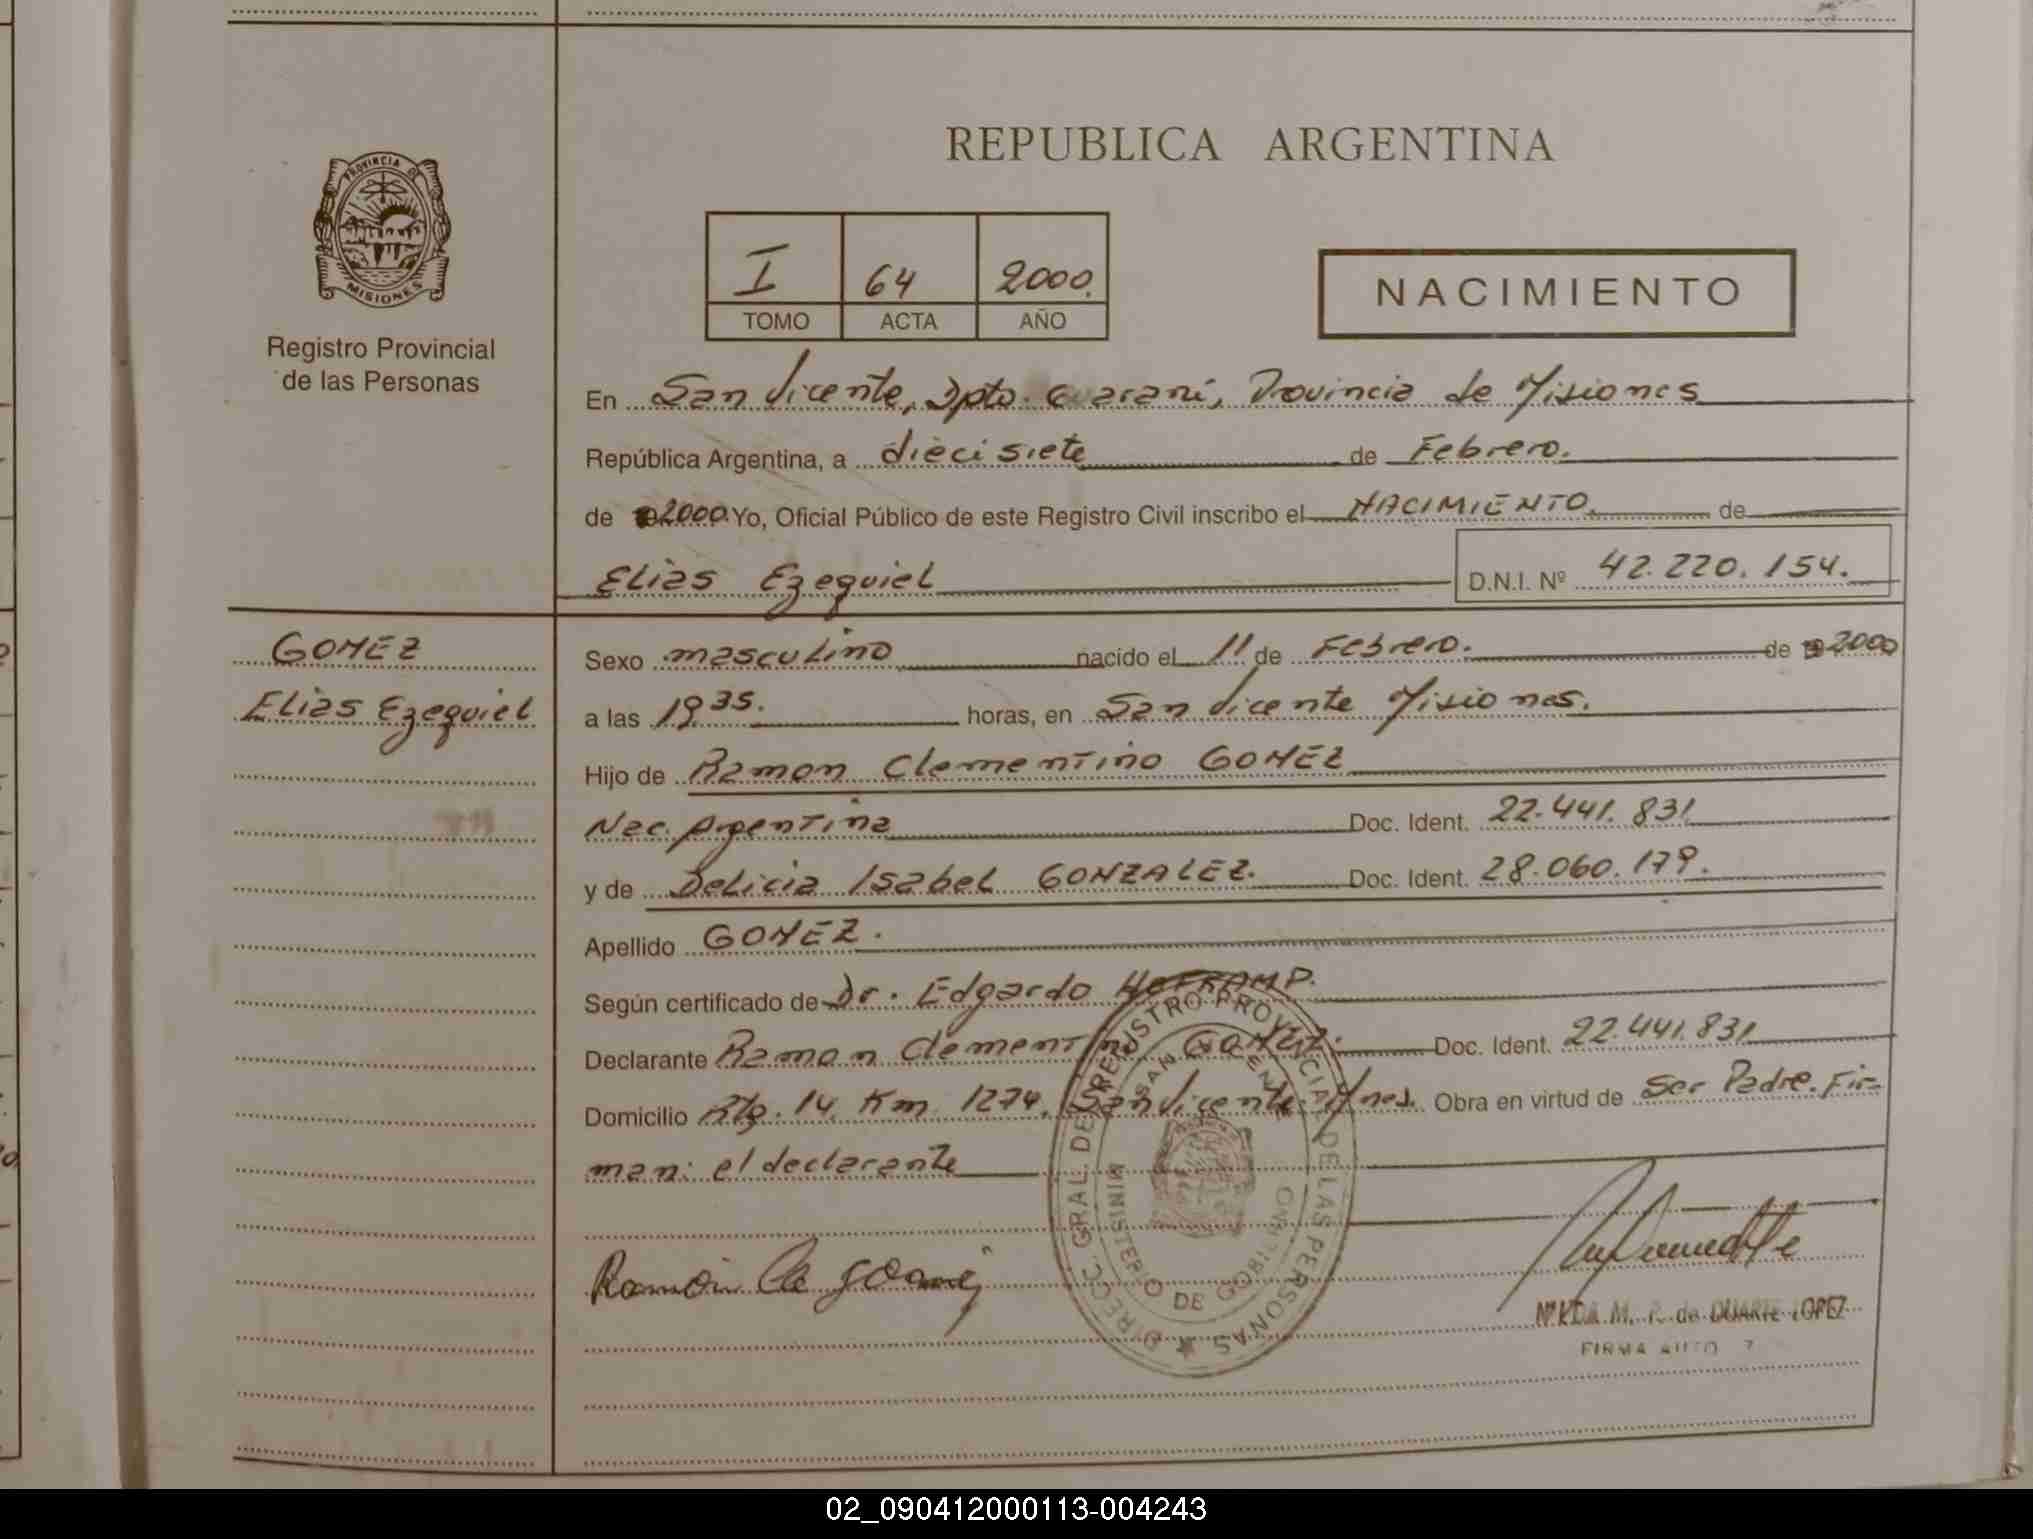 REPUBLICA ARGENTINA
PROVINCIA DE
MISIONES
Registro Provincial
de las Personas
I 64 2000.
TOMO ACTA AÑO
NACIMIENTO
En San Vicente, Dpto. Guarani, Provincia de Misiones
República Argentina, a diecisiete de Febrero.
de 2000. Yo, Oficial Público de este Registro Civil inscribo el NACIMIENTO. de
Elias Ezequiel D.N.I. Nº 42.220.154.
GOMEZ
Elias Ezequiel
Sexo masculino nacido el 11 de Febrero. de 2000
a las 19,35. horas, en San Vicente Misiones.
Hijo de Ramon Clementino GOMEZ
Nac. Argentina Doc. Ident. 22.441.831
y de Delicia Isabel GONZALEZ. Doc. Ident. 28.060.179.
Apellido GOMEZ.
Según certificado de Dr. Edgardo
Declarante Ramon Clementino GOMEZ. Doc. Ident. 22.441.831
Domicilio Rta. 14 Km 1274. San Vicente Mnes. Obra en virtud de Ser Padre. Fir-
man: el declarante
DIRECC. GRAL. DEL REGISTRO PROVINCIAL DE LAS PERSONAS
SAN VICENTE
MINISTERIO DE GOBIERNO
Ramón Cle Gomez
M. P. de DUARTE LOPEZ
FIRMA
02_090412000113-004243